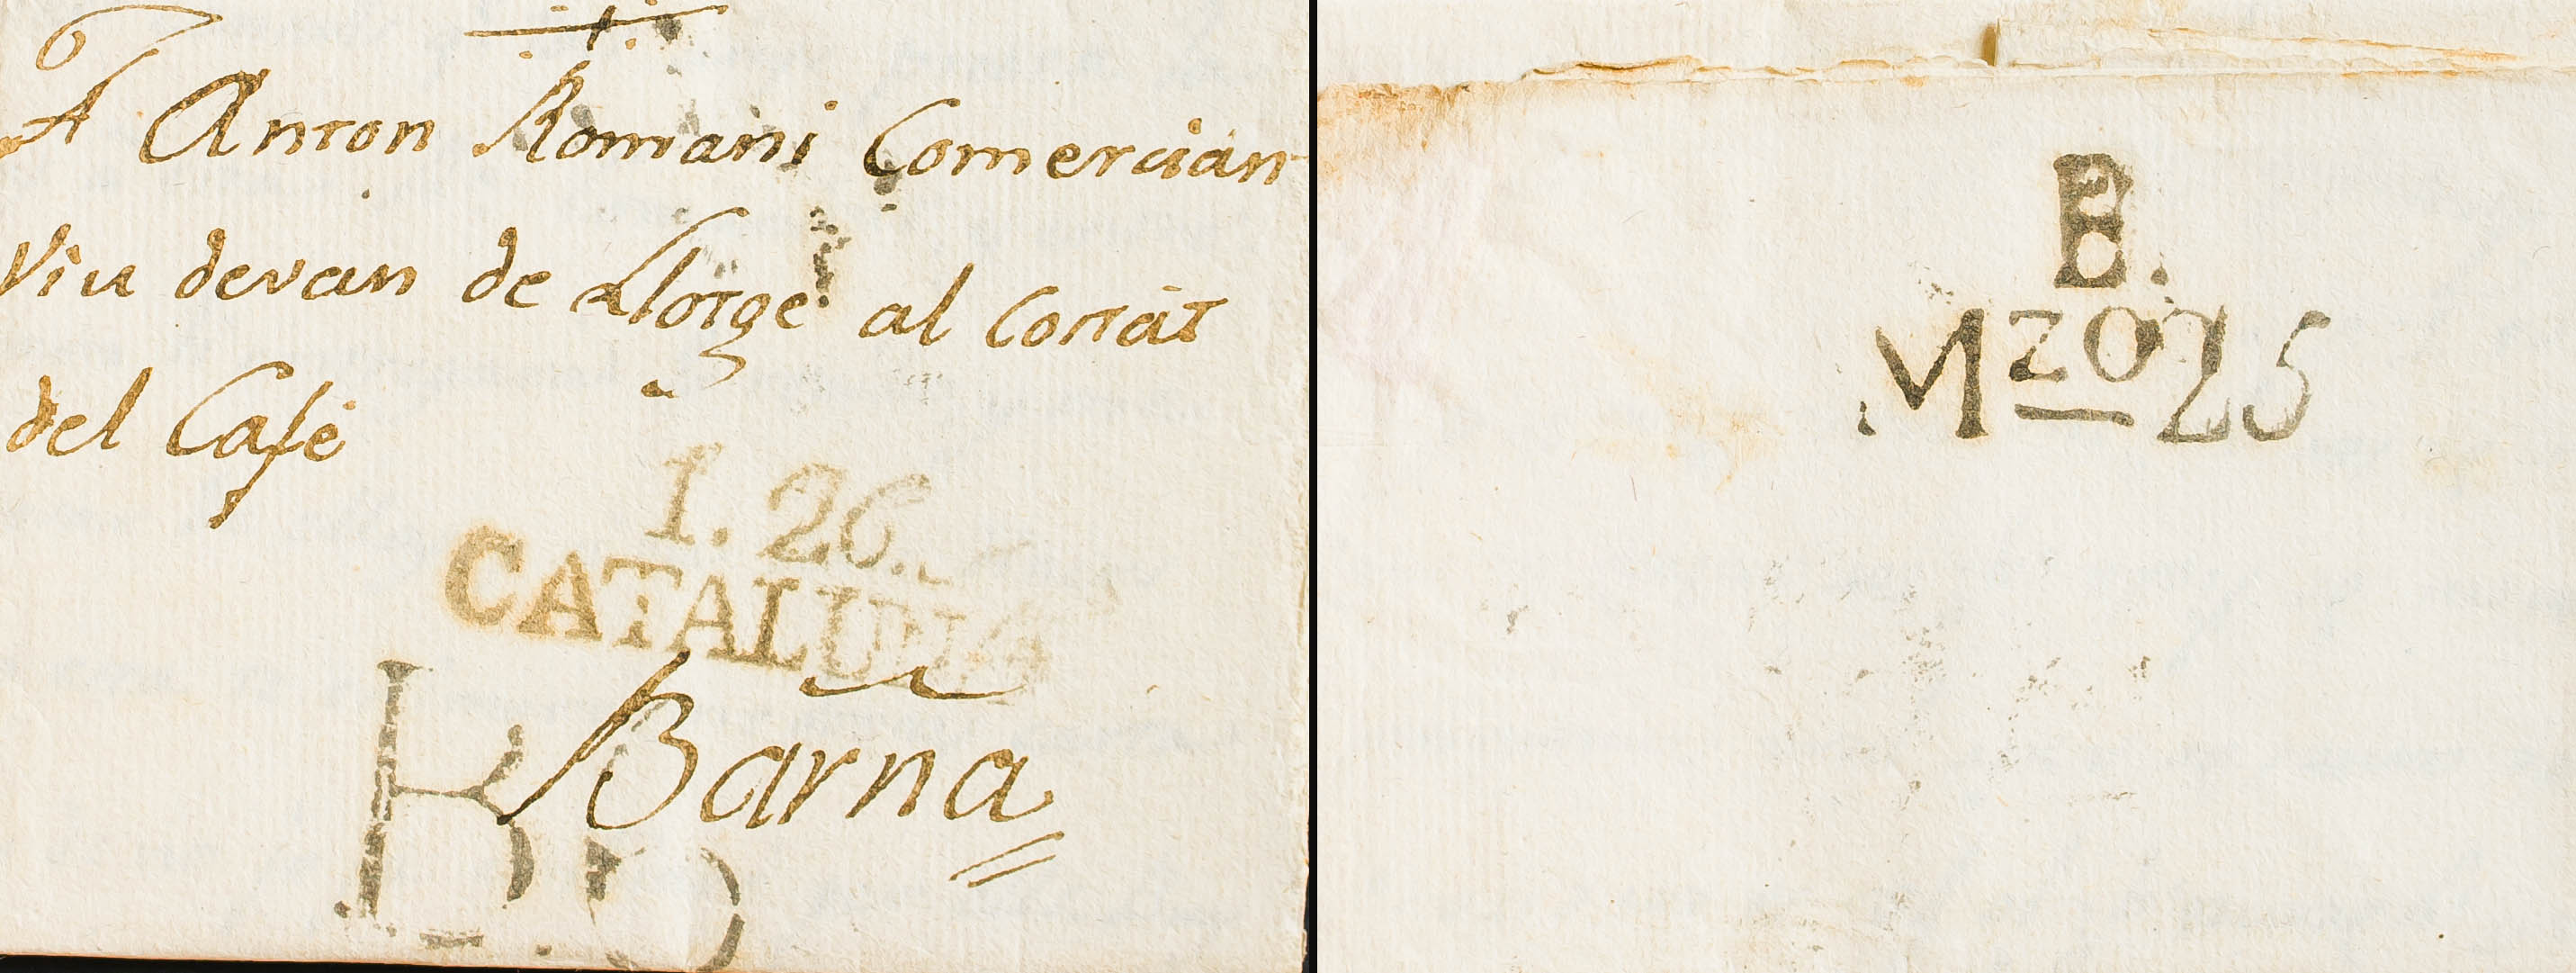 A Anton Romani Comercian
Viu devan de Llotge al Costat
del Café
I. 26.
CATALUÑA
Barna
B.
Mzo 25